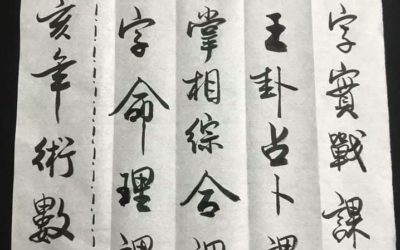 字實戰課
王卦占卜
掌相綜合
字命理課
亥年術數